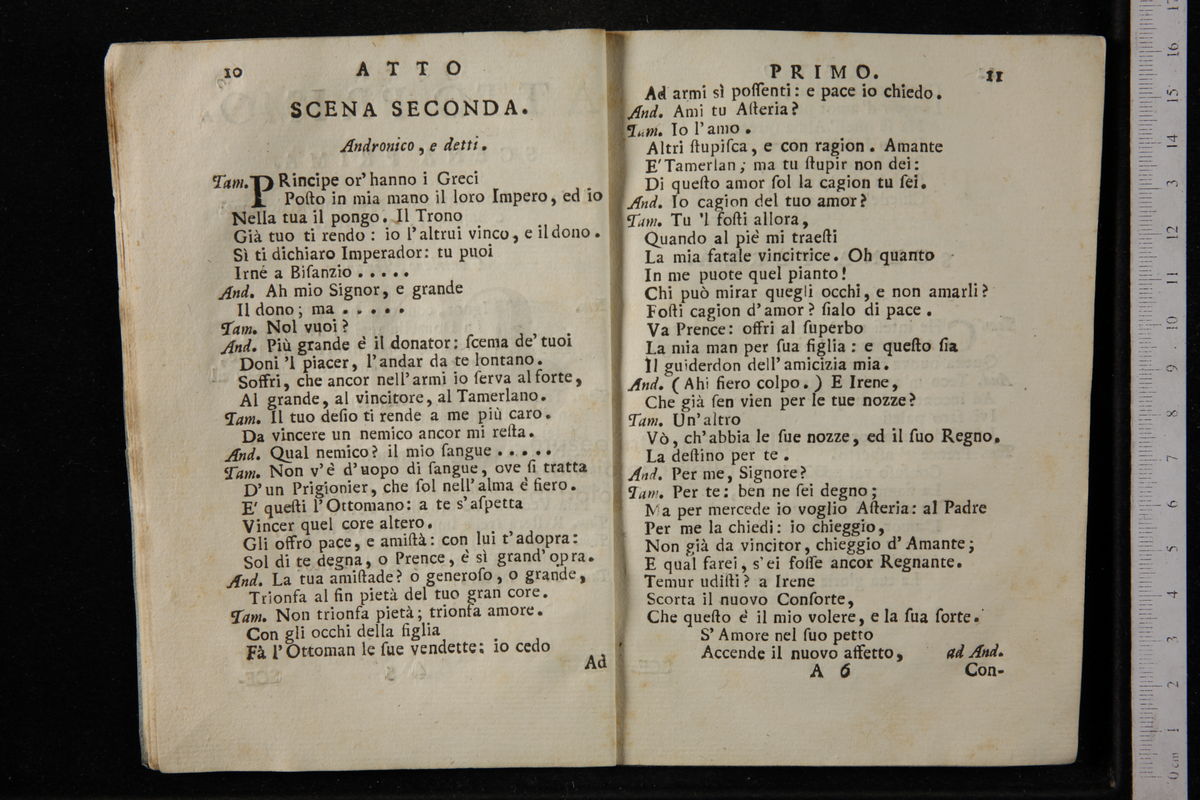 10 ATTO
SCENA SECONDA.
Andronico, e detti.
Tam. PRincipe or' hanno i Greci
Poſto in mia mano il loro Impero, ed io
Nella tua il pongo. Il Trono
Già tuo ti rendo: io l'altrui vinco, e il dono.
Sì ti dichiaro Imperador: tu puoi
Irne a Biſanzio . . . . .
And. Ah mio Signor, e grande
Il dono; ma . . . . .
Tam. Nol vuoi?
And. Più grande è il donator: ſcema de' tuoi
Doni 'l piacer, l'andar da te lontano.
Soffri, che ancor nell'armi io ſerva al forte,
Al grande, al vincitore, al Tamerlano.
Tam. Il tuo deſio ti rende a me più caro.
Da vincere un nemico ancor mi reſta.
And. Qual nemico? il mio ſangue . . . . .
Tam. Non v'è d'uopo di ſangue, ove ſi tratta
D'un Prigionier, che ſol nell'alma è fiero.
E' queſti l'Ottomano: a te s'aſpetta
Vincer quel core altero.
Gli offro pace, e amiſtà: con lui t'adopra:
Sol di te degna, o Prence, è sì grand' opra.
And. La tua amiſtade? o generoſo, o grande,
Trionfa al fin pietà del tuo gran core.
Tam. Non trionfa pietà; trionfa amore.
Con gli occhi della figlia
Fà l'Ottoman le ſue vendette: io cedo
Ad
PRIMO. 11
Ad armi sì poſſenti: e pace io chiedo.
And. Ami tu Aſteria?
Tam. Io l'amo.
Altri ſtupiſca, e con ragion. Amante
E' Tamerlan; ma tu ſtupir non dei:
Di queſto amor ſol la cagion tu ſei.
And. Io cagion del tuo amor?
Tam. Tu 'l foſti allora,
Quando al piè mi traeſti
La mia fatale vincitrice. Oh quanto
In me puote quel pianto!
Chi può mirar quegli occhi, e non amarli?
Foſti cagion d'amor? ſialo di pace.
Va Prence: offri al ſuperbo
La mia man per ſua figlia: e queſto ſia
Il guiderdon dell'amicizia mia.
And. (Ahi fiero colpo.) E Irene,
Che già ſen vien per le tue nozze?
Tam. Un'altro
Vò, ch'abbia le ſue nozze, ed il ſuo Regno.
La deſtino per te.
And. Per me, Signore?
Tam. Per te: ben ne ſei degno;
Ma per mercede io voglio Aſteria: al Padre
Per me la chiedi: io chieggio,
Non già da vincitor, chieggio d'Amante;
E qual farei, s'ei foſſe ancor Regnante.
Temur udiſti? a Irene
Scorta il nuovo Conſorte,
Che queſto è il mio volere, e la ſua ſorte.
S' Amore nel ſuo petto
Accende il nuovo affetto, ad And.
A 6 Con-